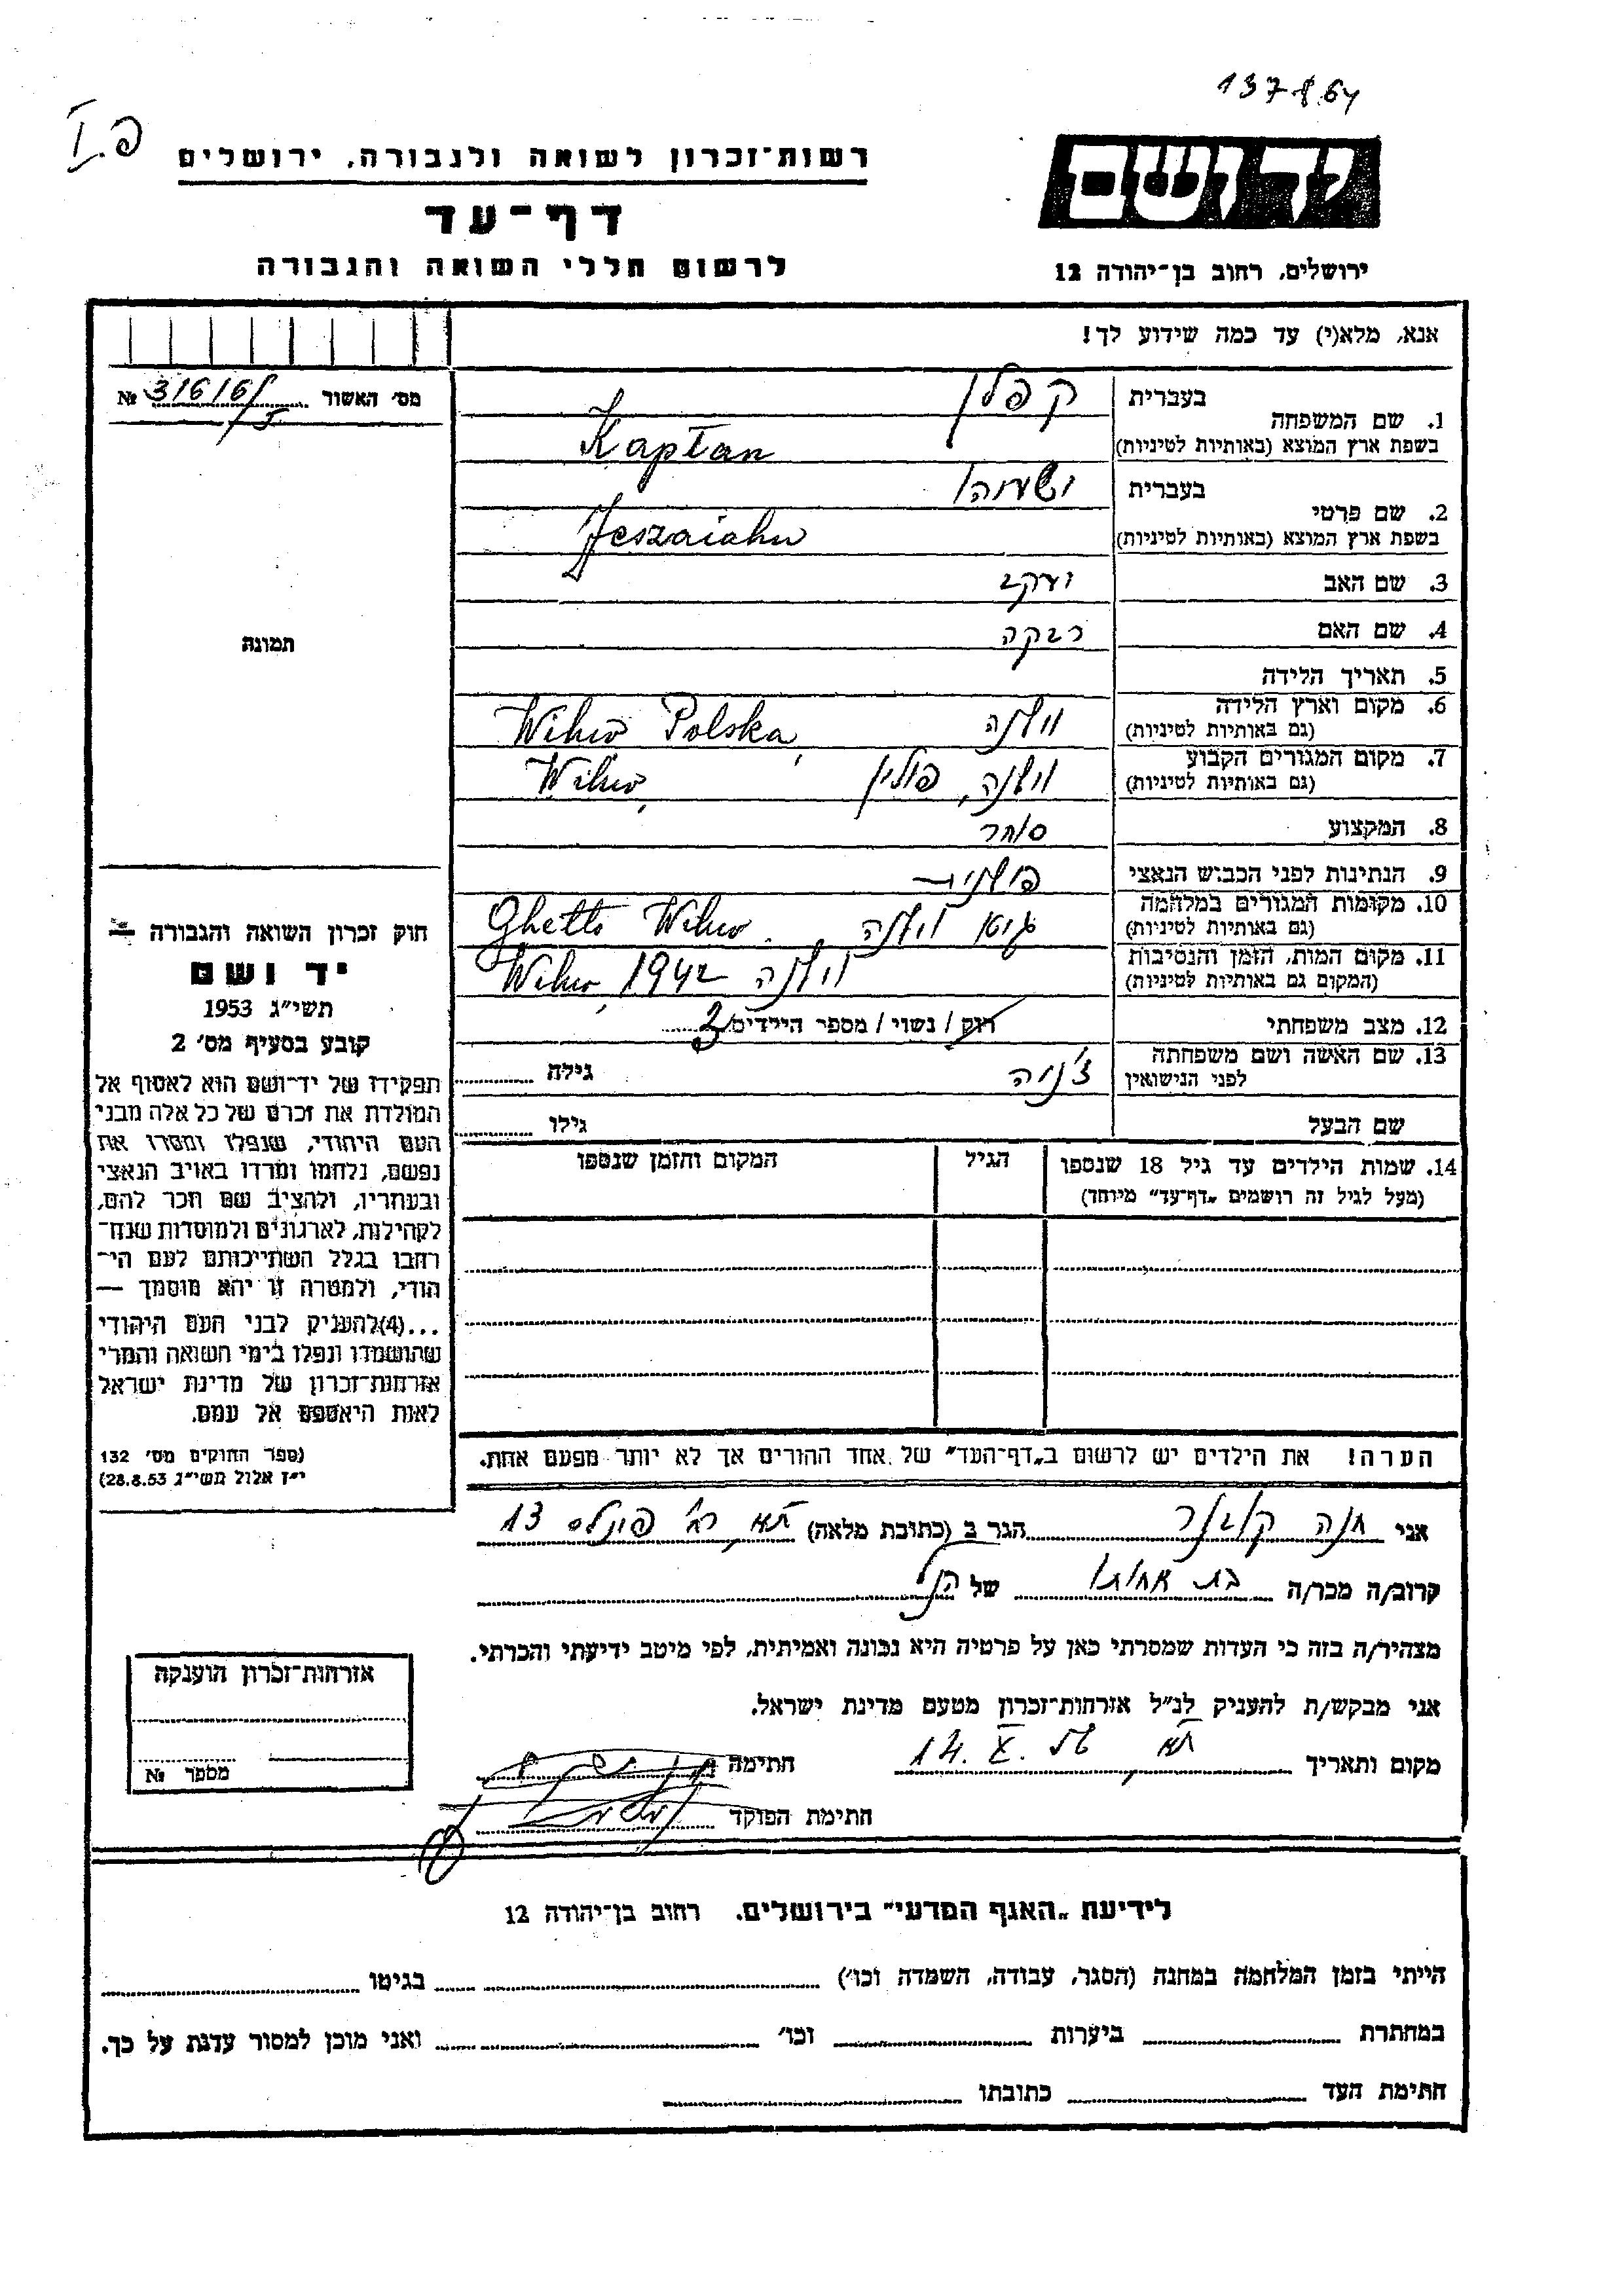 137864
פ. I
יד ושם
רשות־זכרון לשואה ולגבורה, ירושלים
דף־עד
לרשום חללי השואה והגבורה
ירושלים, רחוב בן־יהודה 12
אנא, מלא(י) עד כמה שידוע לך!
מס׳ האשור № 31616/
1. שם המשפחה בעברית קפלן
בשפת ארץ המוצא (באותיות לטיניות) Kapłan
2. שם פרטי בעברית ישעיהו
בשפת ארץ המוצא (באותיות לטיניות) Jeszaiahu
3. שם האב יעקב
4. שם האם רבקה
5. תאריך הלידה
6. מקום וארץ הלידה וילנה Wilno Polska
(גם באותיות לטיניות)
7. מקום המגורים הקבוע וילנה, פולין Wilno
(גם באותיות לטיניות)
8. המקצוע סוחר
9. הנתינות לפני הכבוש הנאצי פולנית
10. מקומות המגורים במלחמה גיטו וילנה Ghetto Wilno
(גם באותיות לטיניות)
11. מקום המות, הזמן והנסיבות וילנה 1942 Wilno
(המקום גם באותיות לטיניות)
12. מצב משפחתי רוק / נשוי / מספר הילדים 2
13. שם האשה ושם משפחתה גילה
לפני הנישואין
שם הבעל גילו
14. שמות הילדים עד גיל 18 שנספו הגיל המקום והזמן שנספו
(מעל לגיל זה רושמים „דף־עד" מיוחד)
הערה! את הילדים יש לרשום ב„דף־העד" של אחד ההורים אך לא יותר מפעם אחת.
תמונה
חוק זכרון השואה והגבורה —
יד ושם
תשי״ג 1953
קובע בסעיף מס׳ 2
תפקידו של יד־ושם הוא לאסוף אל
המולדת את זכרם של כל אלה מבני
העם היהודי, שנפלו ומסרו את
נפשם, נלחמו ומרדו באויב הנאצי
ובעוזריו, ולהציב שם וזכר להם,
לקהילות, לארגונים ולמוסדות שנח־
רבו בגלל השתייכותם לעם הי־
הודי, ולמטרה זו יהא מוסמך —
...(4)להעניק לבני העם היהודי
שהושמדו ונפלו בימי השואה והמרי
אזרחות־זכרון של מדינת ישראל
לאות היאספם אל עמם.
(ספר החוקים מס׳ 132
י״ז אלול תשי״ג 28.8.53)
אני חנה הגר ב (כתובת מלאה) תא רח׳ פינלס 13
קרוב/ה מכר/ה בת אחותו של הנ״ל
מצהיר/ה בזה כי העדות שמסרתי כאן על פרטיה היא נכונה ואמיתית, לפי מיטב ידיעתי והכרתי.
אני מבקש/ת להעניק לנ״ל אזרחות־זכרון מטעם מדינת ישראל.
מקום ותאריך תא 14. X. חתימה
חתימת הפוקד
אזרחות־זכרון הוענקה
מספר №
לידיעת „האגף המדעי" בירושלים. רחוב בן־יהודה 12
הייתי בזמן המלחמה במחנה (הסגר, עבודה, השמדה וכו׳) בגיטו
במחתרת ביערות וכו׳ ואני מוכן למסור עדות על כך.
חתימת העד כתובתו